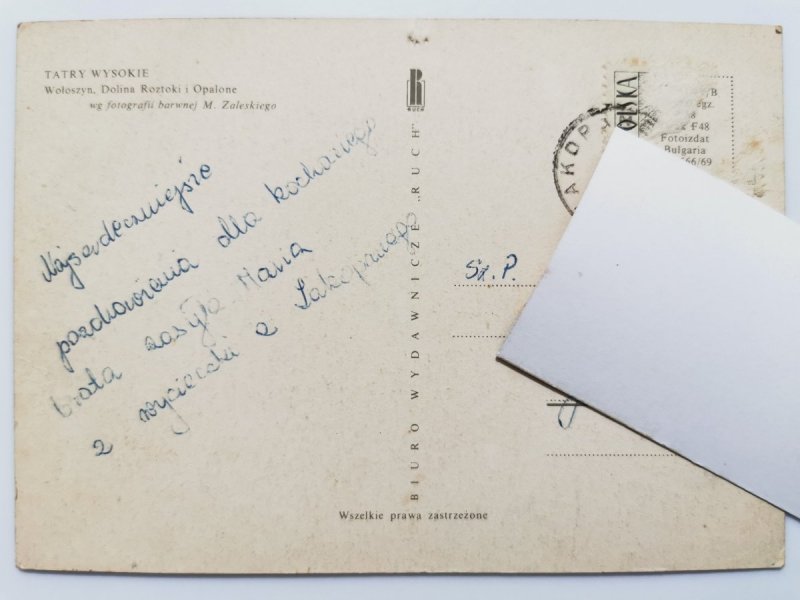 TATRY WYSOKIE
Wołoszyn, Dolina Roztoki i Opalone
wg fotografii barwnej M. Zaleskiego
Najserdeczniejsze
pozdrowienia dla kochanego
brata zasyła Maria
z wycieczki z Zakopanego
RUCH
BIURO WYDAWNICZE „RUCH”
Wszelkie prawa zastrzeżone
POLSKA
AKOP
F48
Fotoizdat
Bulgaria
66/69
Sz. P.